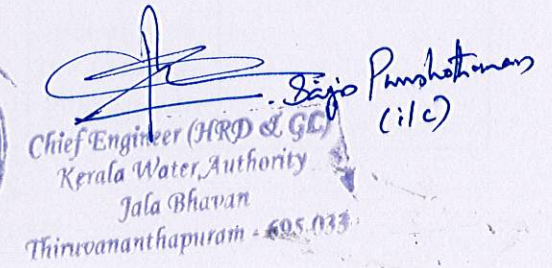 Sajio Purushothaman
(i/c)
Chief Engineer (HRD & GL)
Kerala Water Authority
Jala Bhavan
Thiruvananthapuram - 695 033